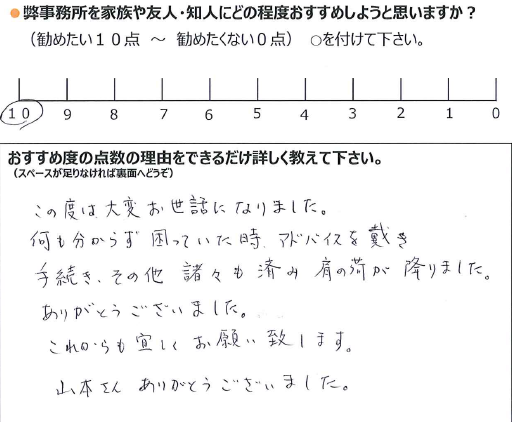 ●弊事務所を家族や友人・知人にどの程度おすすめしようと思いますか？
（勧めたい１０点　～　勧めたくない０点）　○を付けて下さい。
10 9 8 7 6 5 4 3 2 1 0
おすすめ度の点数の理由をできるだけ詳しく教えて下さい。
（スペースが足りなければ裏面へどうぞ）
この度は大変お世話になりました。
何も分からず困っていた時、アドバイスを戴き
手続き、その他諸々も済み肩の荷が降りました。
ありがとうございました。
これからも宜しくお願い致します。
山本さんありがとうございました。